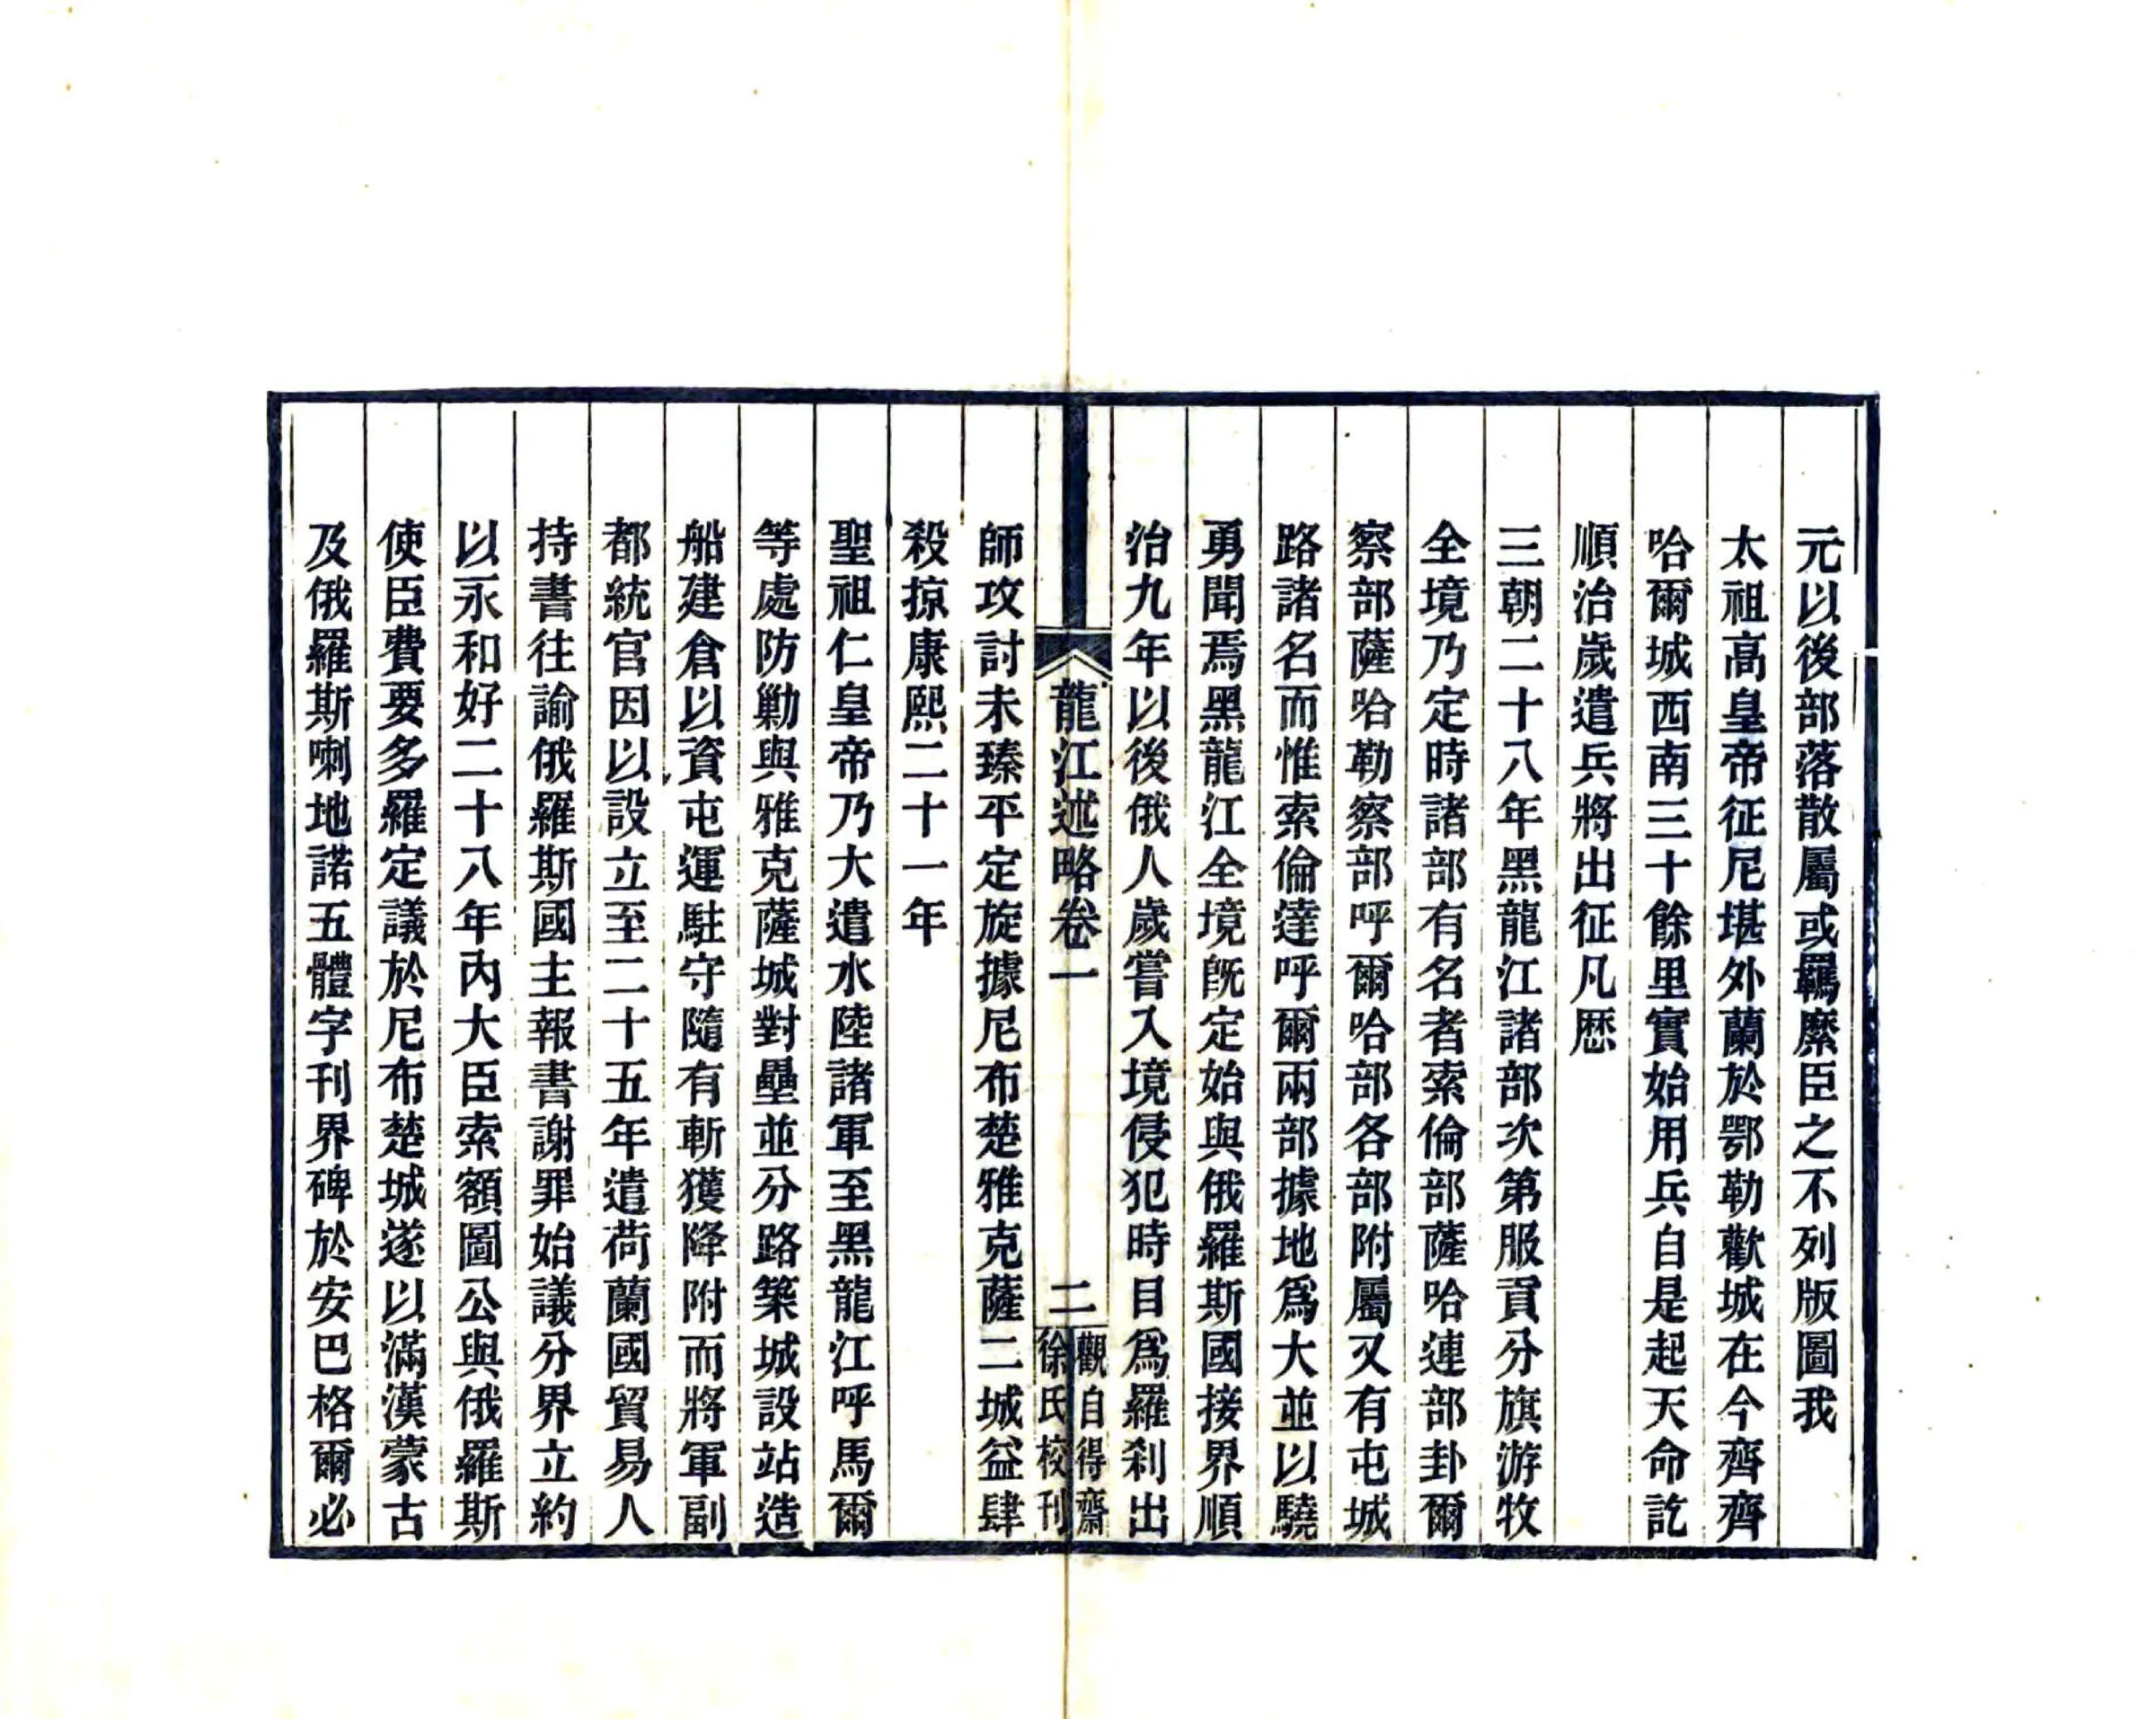 元以後部落散屬或羈縻臣之不列版圖我
太祖高皇帝征尼堪外蘭於鄂勒歡城在今齊齊
哈爾城西南三十餘里實始用兵自是起天命訖
順治歲遣兵將出征凡歷
三朝二十八年黑龍江諸部次第服貢分旗游牧
全境乃定時諸部有名者索倫部薩哈連部卦爾
察部薩哈勒察部呼爾哈部各部附屬又有屯城
路諸名而惟索倫達呼爾兩部據地爲大並以驍
勇聞焉黑龍江全境旣定始與俄羅斯國接界順
治九年以後俄人歲嘗入境侵犯時目爲羅刹出
龍江述略卷一
二
觀自得齋
徐氏校刊
師攻討未臻平定旋據尼布楚雅克薩二城益肆
殺掠康熙二十一年
聖祖仁皇帝乃大遣水陸諸軍至黑龍江呼馬爾
等處防勦與雅克薩城對壘並分路築城設站造
船建倉以資屯運駐守隨有斬獲降附而將軍副
都統官因以設立至二十五年遣荷蘭國貿易人
持書往諭俄羅斯國主報書謝罪始議分界立約
以永和好二十八年內大臣索額圖公與俄羅斯
使臣費要多羅定議於尼布楚城遂以滿漢蒙古
及俄羅斯喇地諾五體字刊界碑於安巴格爾必